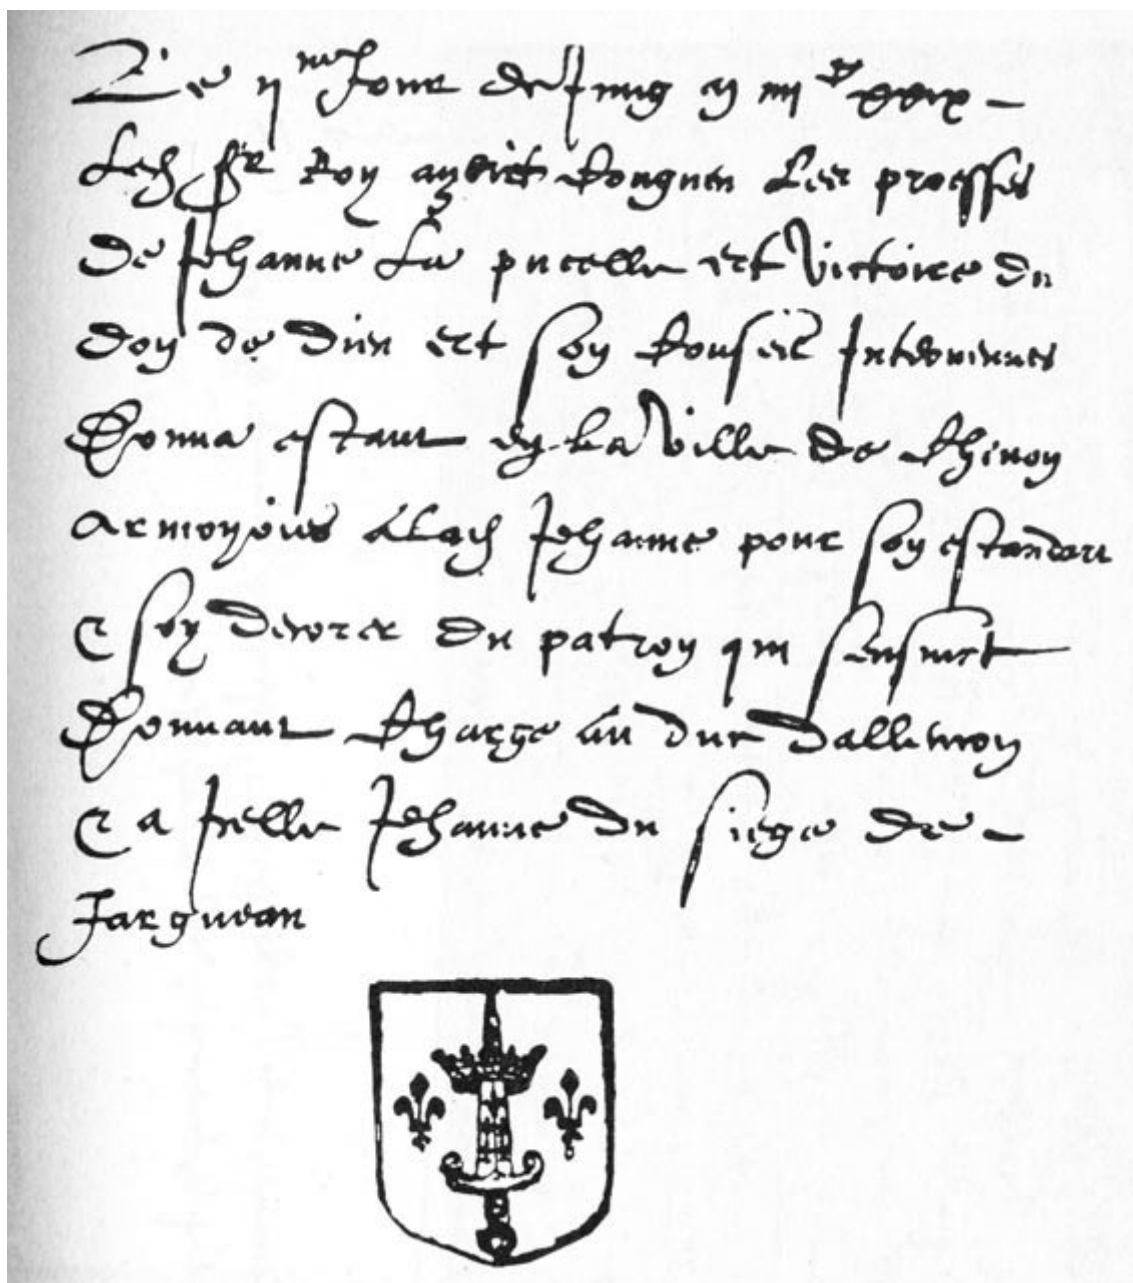 Le ij me jour de Jung m iiij c xxix
Led sr Roy ayant congneu les proesses
de Jehanne La pucelle et victoires du
don de dieu et son conseil Intervenues
Donna estant en La ville de Chinon
armoyries a Lad Jehanne pour son estandart
& soy decorer du patron qui sensuict
Donnant charge au duc dallencon
& a Icelle Jehanne du siege de
Jargueau